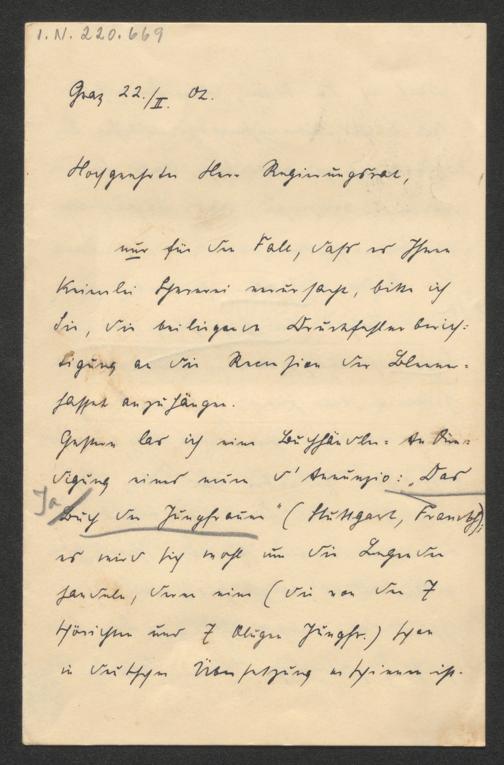 I.N. 220.669
Graz 22./II. 02.
Hochgeehrter Herr Regierungsrat,
nur für den Fall, dass es Ihnen
keinerlei Schererei verursacht, bitte ich
Sie, die beiliegende Druckfehlerberich-
tigung an die Recension der Blenner-
hasset anzuhängen.
Gestern las ich eine Buchhändler-Ankün-
digung eines neuen d'Annunzio: „Das
Ja
Buch der Jungfrauen" (Stuttgart, Franckh);
es wird sich wohl um die Legenden
handeln, deren eine (die von den 7
thörichten und 7 klugen Jungfr.) schon
in deutscher Übersetzung erschienen ist.